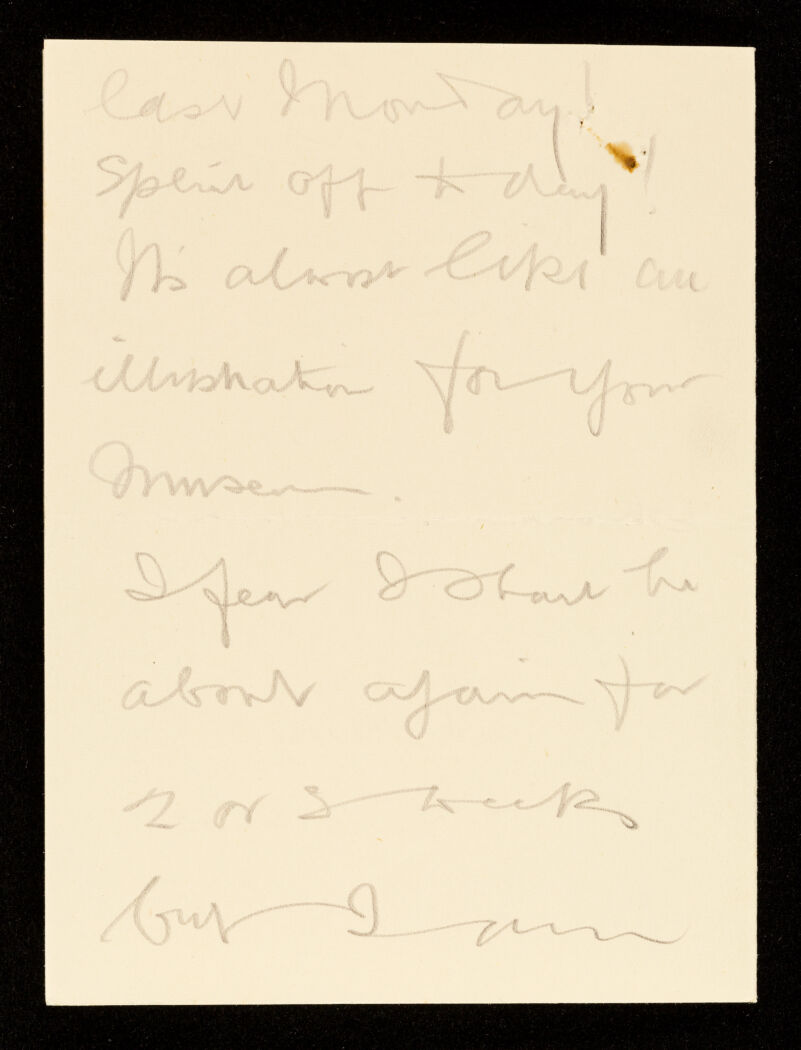 last Monday!
Splint off to day!
It's almost like an
illustration for your
Museum.
I fear I shant be
about again for
2 or 3 weeks
but I am